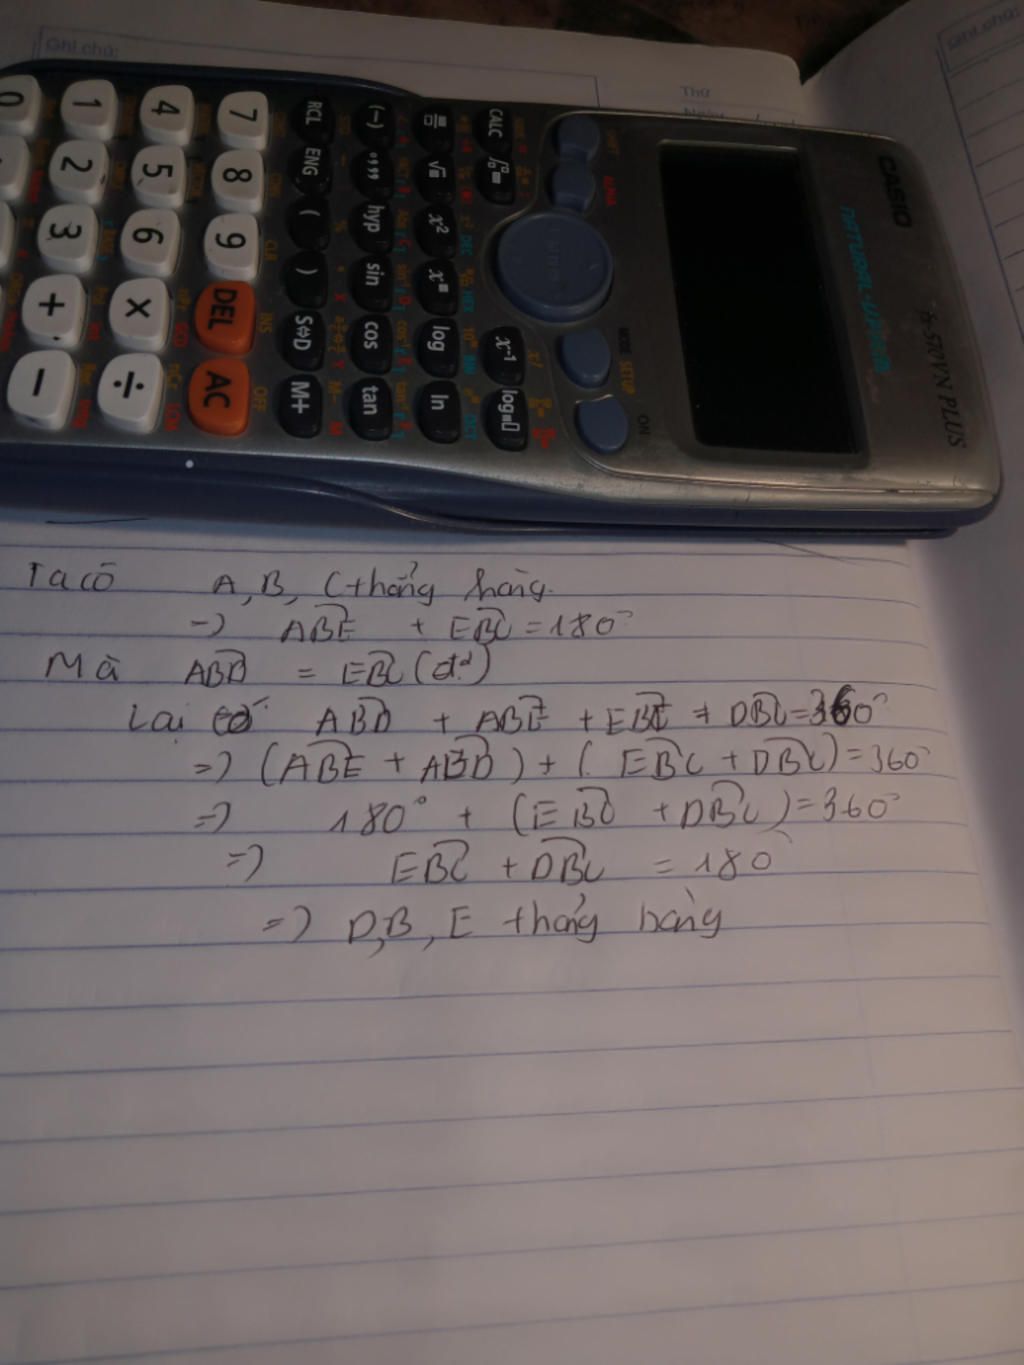 Ghi chú:
Ghi chú:
Thứ
CASIO
fx-570VN PLUS
NATURAL-V.P.A.M.
SHIFT ALPHA MODE SETUP ON
CALC x⁻¹ log
√ x² log ln
(−) hyp sin cos tan
RCL ENG ( ) S⇔D M+
7 8 9 DEL AC
4 5 6 × ÷
1 2 3 + −
0
Ta có A, B, C thẳng hàng.
=> ABE + EBC = 180°
Mà ABD = EBC (đ²)
Lại có ABD + ABE + EBC + DBC = 360°
=> (ABE + ABD) + (EBC + DBC) = 360°
=> 180° + (EBC + DBC) = 360°
=> EBC + DBC = 180
=> D, B, E thẳng hàng